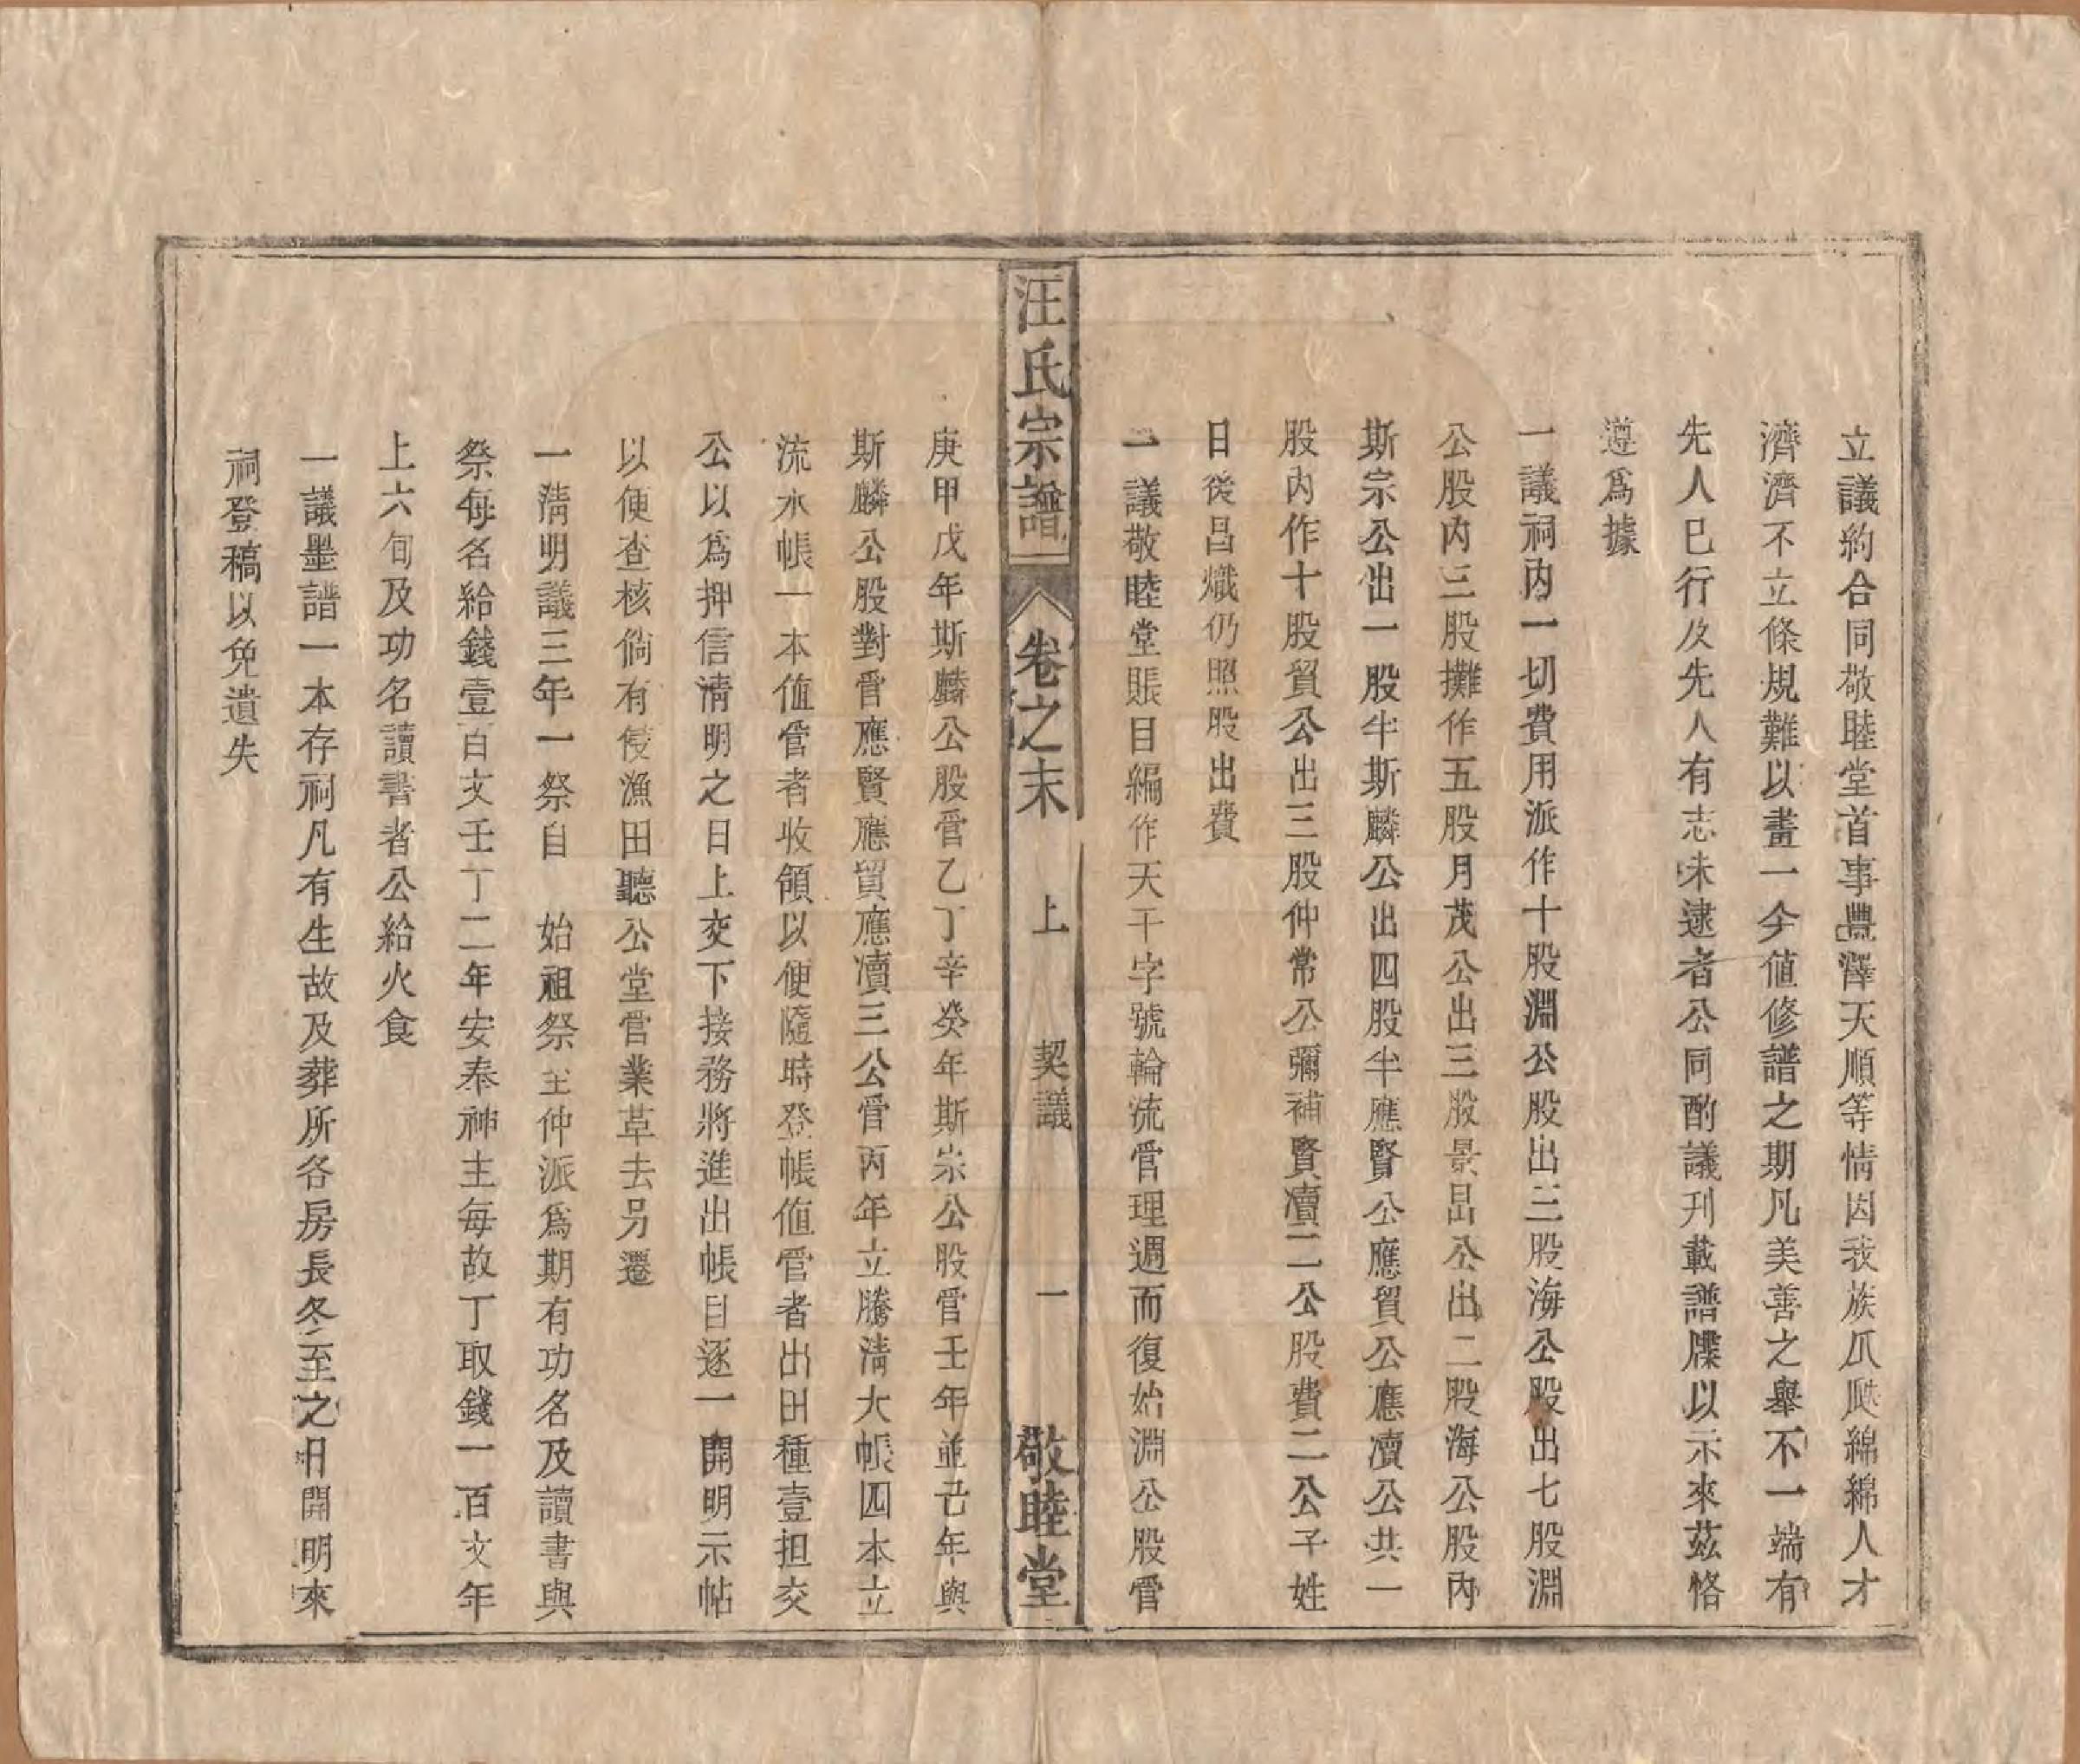 立議約合同敬睦堂首事豊澤天順等情因我族瓜瓞綿綿人才
濟濟不立條規難以畫一今値修譜之期凡美善之舉不一端有
先人已行及先人有志未逮者公同酌議刋載譜牒以示來茲恪
遵爲據
一議祠内一切費用派作十股淵公股出三股海公股出七股淵
公股内三股攤作五股月茂公出三股景昌公出二股海公股内
斯宗公出一股半斯麟公出四股半應賢公應貿公應瀆公共一
股内作十股貿公出三股仲常公彌補賢瀆二公股費二公子姓
日後昌熾仍照股出費
一議敬睦堂賬目編作天干字號輪流管理週而復始淵公股管
汪氏宗譜
卷之末
上
契議
一
敬睦堂
庚甲戊年斯麟公股管乙丁辛癸年斯崇公股管壬年並己年與
斯麟公股對管應賢應貿應瀆三公管丙年立謄清大帳四本立
流水帳一本值管者收領以便隨時登帳值管者出田種壹担交
公以爲押信清明之日上交下接務將進出帳目逐一開明示帖
以便查核倘有侵漁田聽公堂管業草去另遷
一清明議三年一祭自 始祖祭至仲派爲期有功名及讀書與
祭每名給錢壹百文壬丁二年安奉神主每故丁取錢一百文年
上六旬及功名讀書者公給火食
一議墨譜一本存祠凡有生故及葬所各房長冬至之日開明來
祠登稿以免遺失